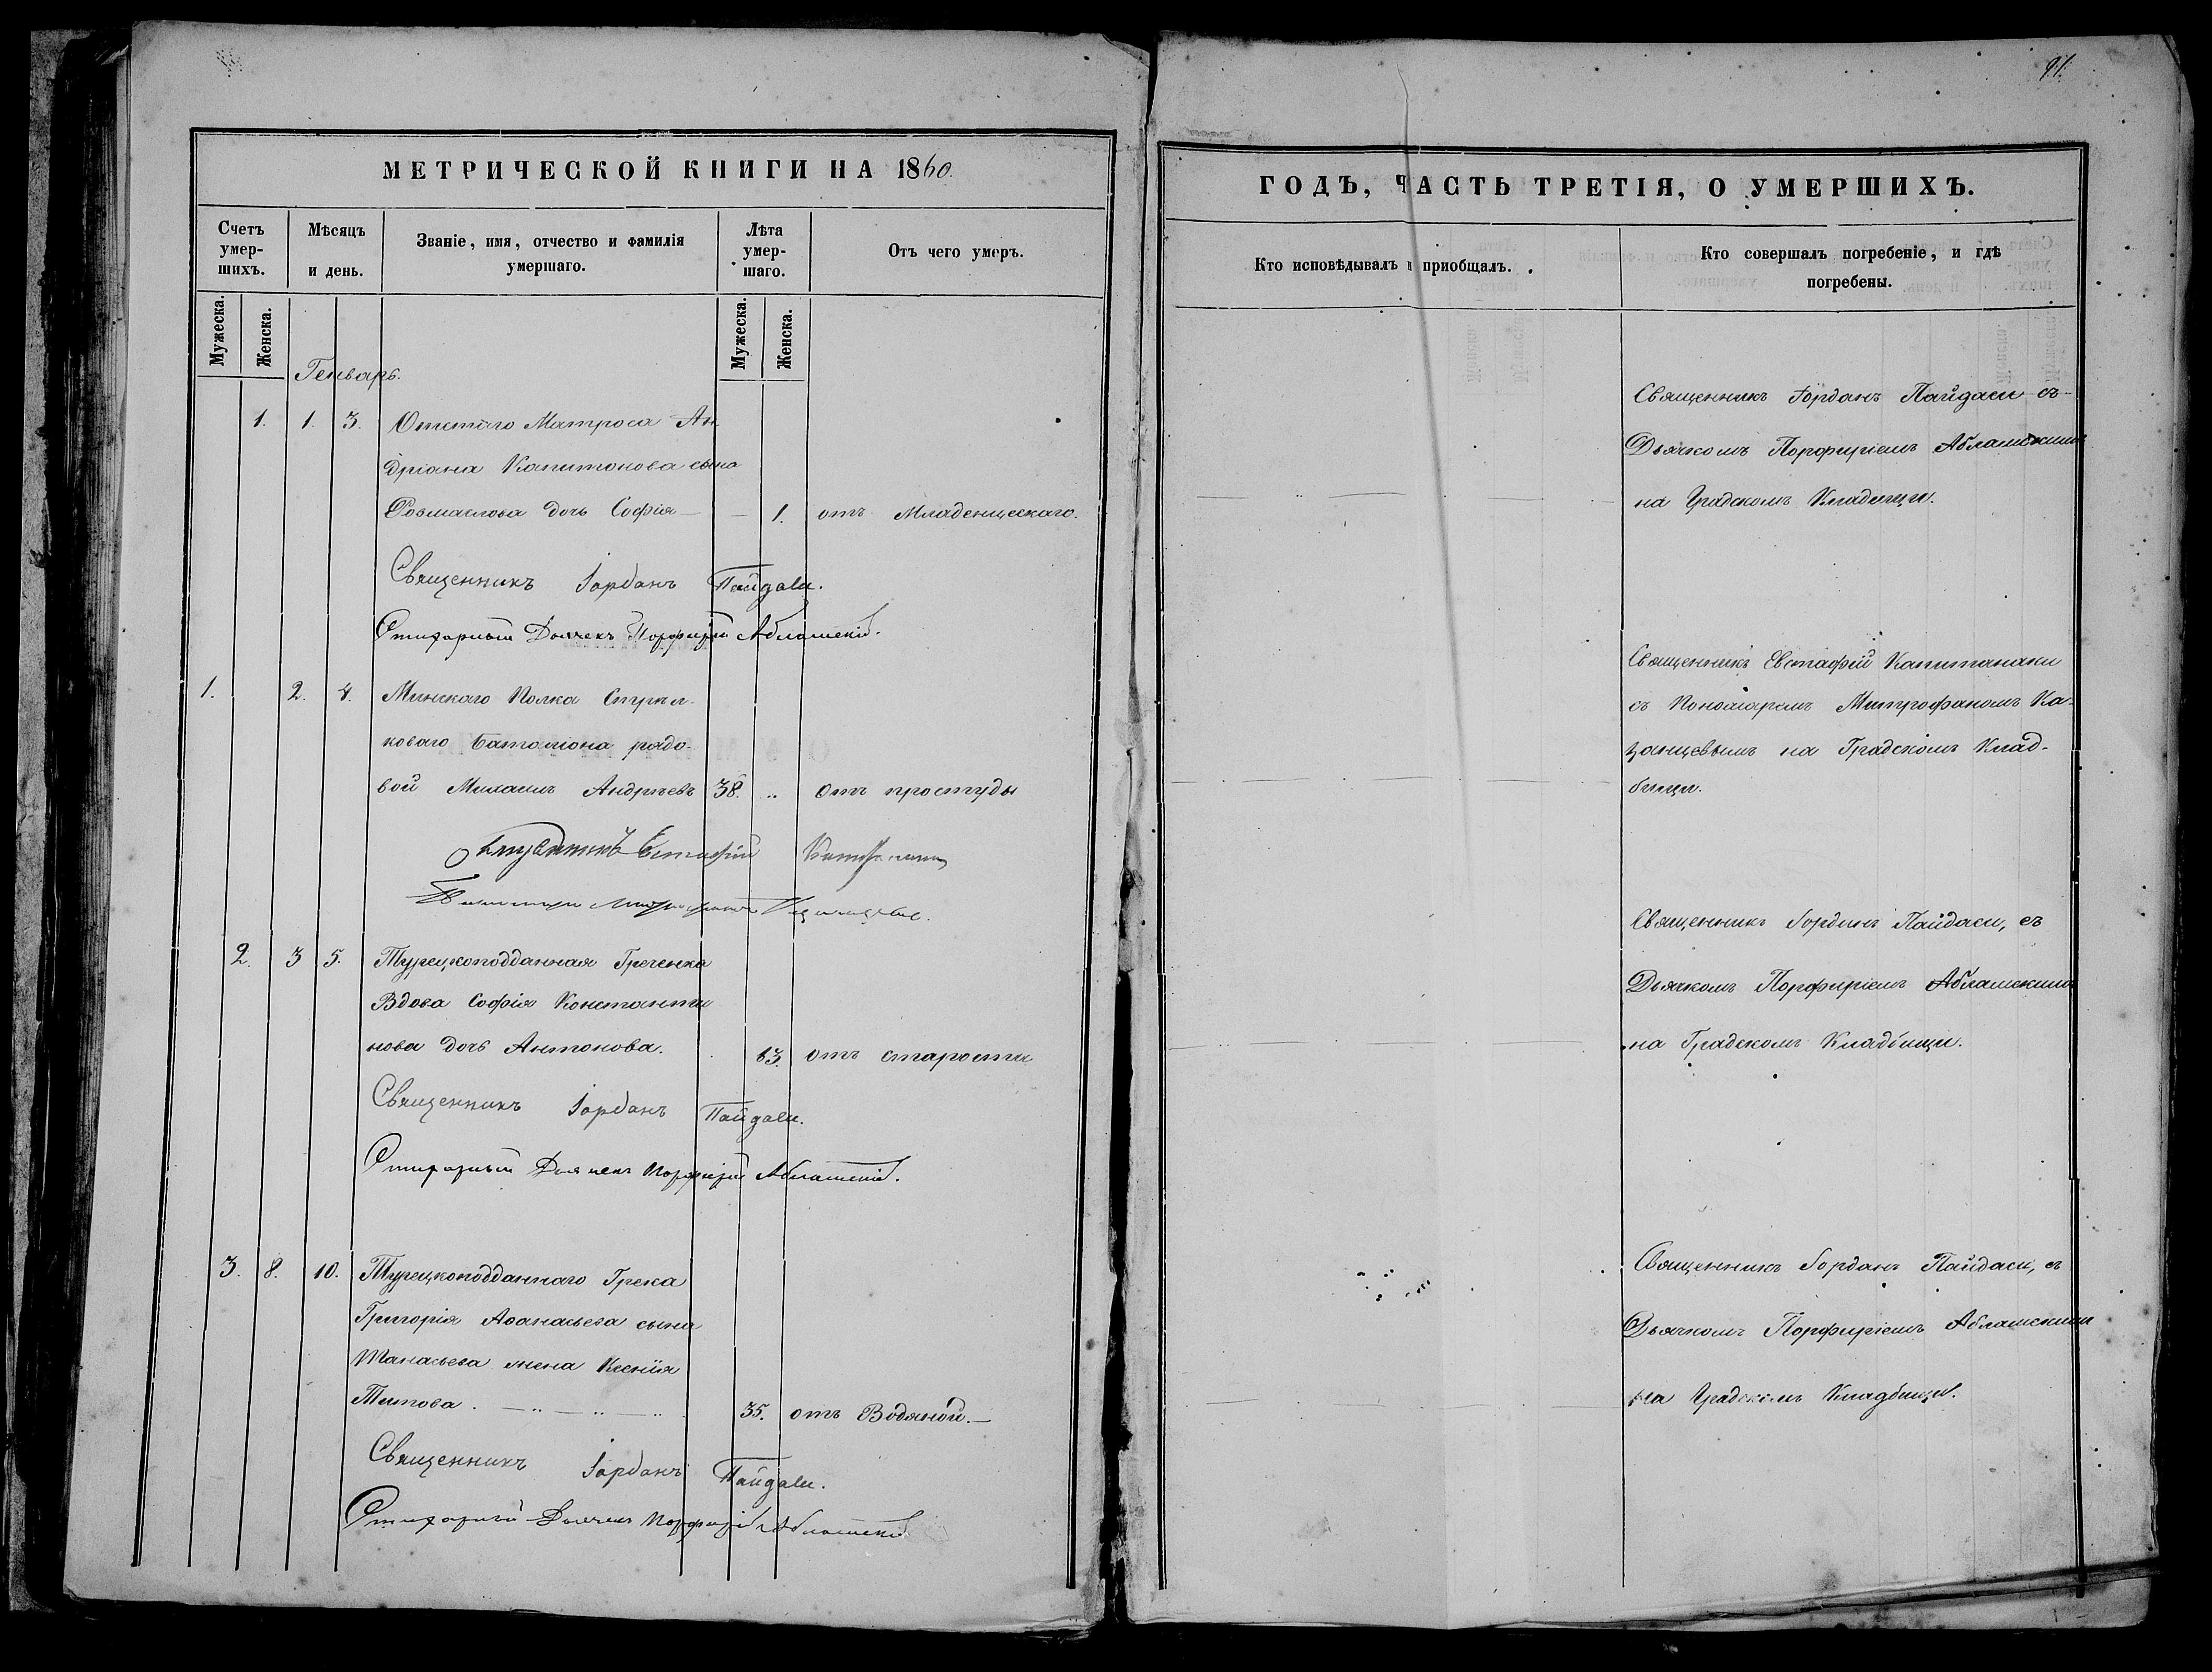 91.
МЕТРИЧЕСКОЙ КНИГИ НА 1860.
Счетъ умер-шихъ.
Мѣсяцъ и день.
Званіе, имя, отчество и фамилія умершаго.
Лѣта умер-шаго.
Отъ чего умеръ.
Мужеска.
Женска.
Мужеска.
Женска.
Генварь.
1. 1. 3. Отстаго Матроса Ан
дріана Капитонова сына
дочь Софія — — 1. отъ Младенческаго.
Священникъ Іорданъ Пайдаси.
Стихарный Дьячекъ Порфирій Аблашскій.
1. 2. 4. Минскаго Полка Стрѣл
коваго Баталіона рядо-
вой Михаилъ Андрѣевъ 38. .. Отъ простуды
Священникъ Евстафій Капитанаки
Пономарь Митрофанъ
2. 3 5. Турецкоподданная Гречанка
Вдова Софія Константи
нова дочь Антонова. 63. отъ старости
Священникъ Іорданъ Пайдаси.
Стихарный Дьячекъ Порфирій Аблашскій.
3. 8. 10. Турецкоподданнаго Грека
Григорія Аѳанасьева сына
Танасьева жена Ксенія
Титова. — .. — .. — .. 35. отъ Водяной. —
Священникъ Іорданъ Пайдаси.
Стихарный Дьячекъ Порфирій Аблашскій
ГОДЪ, ЧАСТЬ ТРЕТІЯ, О УМЕРШИХЪ.
Кто исповѣдывалъ и приобщалъ.
Кто совершалъ погребеніе, и гдѣ погребены.
Священникъ Іорданъ Пайдаси съ
Дьячкомъ Порфиріемъ Аблашскимъ
на Градскомъ Кладбищи.
Священникъ Евстафій Капитанаки
съ Пономаремъ Митрофаномъ Ка-
занцевымъ на Градскомъ Клад-
бищи.
Священникъ Іорданъ Пайдаси, съ
Дьячкомъ Порфиріемъ Аблашскимъ
на Градскомъ Кладбищи.
Священникъ Іорданъ Пайдаси, съ
Дьячкомъ Порфиріемъ Аблашскимъ
на Градскомъ Кладбищи.